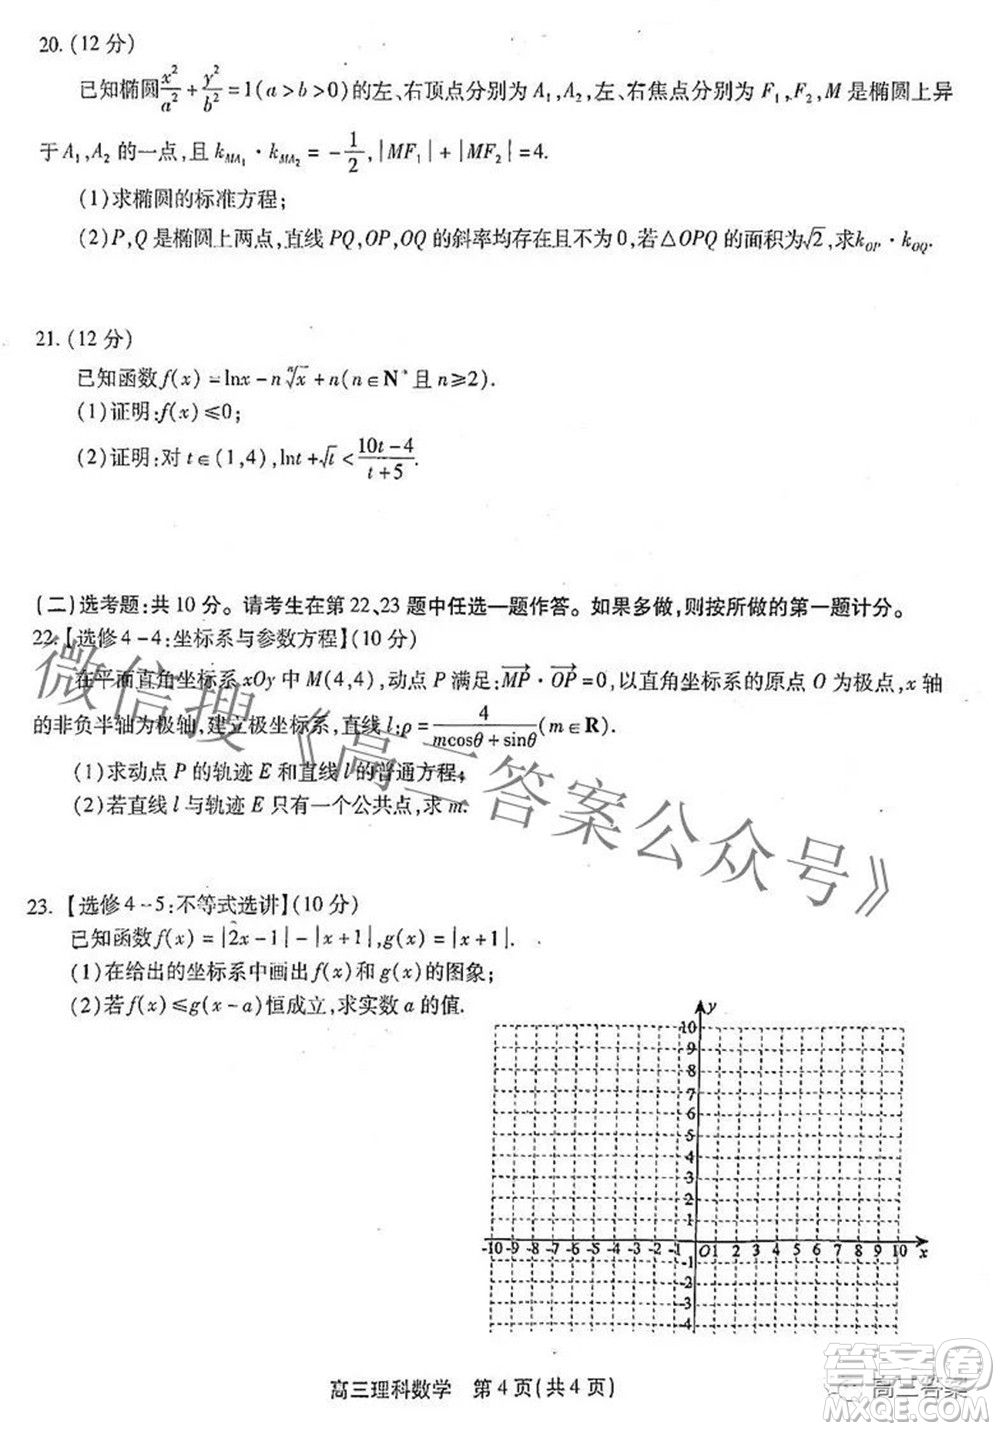 20. (12 分)
已知椭圆x²/a² + y²/b² =1(a>b>0)的左、右顶点分别为 A₁,A₂,左、右焦点分别为 F₁,F₂,M 是椭圆上异
于 A₁,A₂ 的一点,且 k_{MA₁} · k_{MA₂} = -1/2,|MF₁| + |MF₂| =4.
(1)求椭圆的标准方程;
(2)P,Q 是椭圆上两点,直线 PQ,OP,OQ 的斜率均存在且不为 0,若△OPQ 的面积为√2,求k_{OP} · k_{OQ}.
21. (12 分)
已知函数 f(x) =lnx-n ⁿ√x +n(n∈N* 且 n≥2).
(1)证明:f(x)≤0;
(2)证明:对 t∈(1,4),lnt+√t < (10t-4)/(t+5).
(二)选考题:共 10 分。请考生在第 22、23 题中任选一题作答。如果多做,则按所做的第一题计分。
22.【选修 4-4:坐标系与参数方程】(10 分)
在平面直角坐标系 xOy 中 M(4,4),动点 P 满足:MP→ · OP→ =0,以直角坐标系的原点 O 为极点,x 轴
的非负半轴为极轴,建立极坐标系,直线 l:ρ= 4/(mcosθ+sinθ)(m∈R).
(1)求动点 P 的轨迹 E 和直线 l 的普通方程;
(2)若直线 l 与轨迹 E 只有一个公共点,求 m.
23.【选修 4-5:不等式选讲】(10 分)
已知函数 f(x) = |2x-1| - |x+1|,g(x) = |x+1|.
(1)在给出的坐标系中画出 f(x)和 g(x)的图象;
(2)若 f(x)≤g(x-a)恒成立,求实数 a 的值.
y
10
9
8
7
6
5
4
3
2
1
-10 -9 -8 -7 -6 -5 -4 -3 -2 -1 O 1 2 3 4 5 6 7 8 9 10 x
-1
-2
-3
-4
高三理科数学 第 4 页(共 4 页)
微信搜《高三答案公众号》
答案圈
高三答案